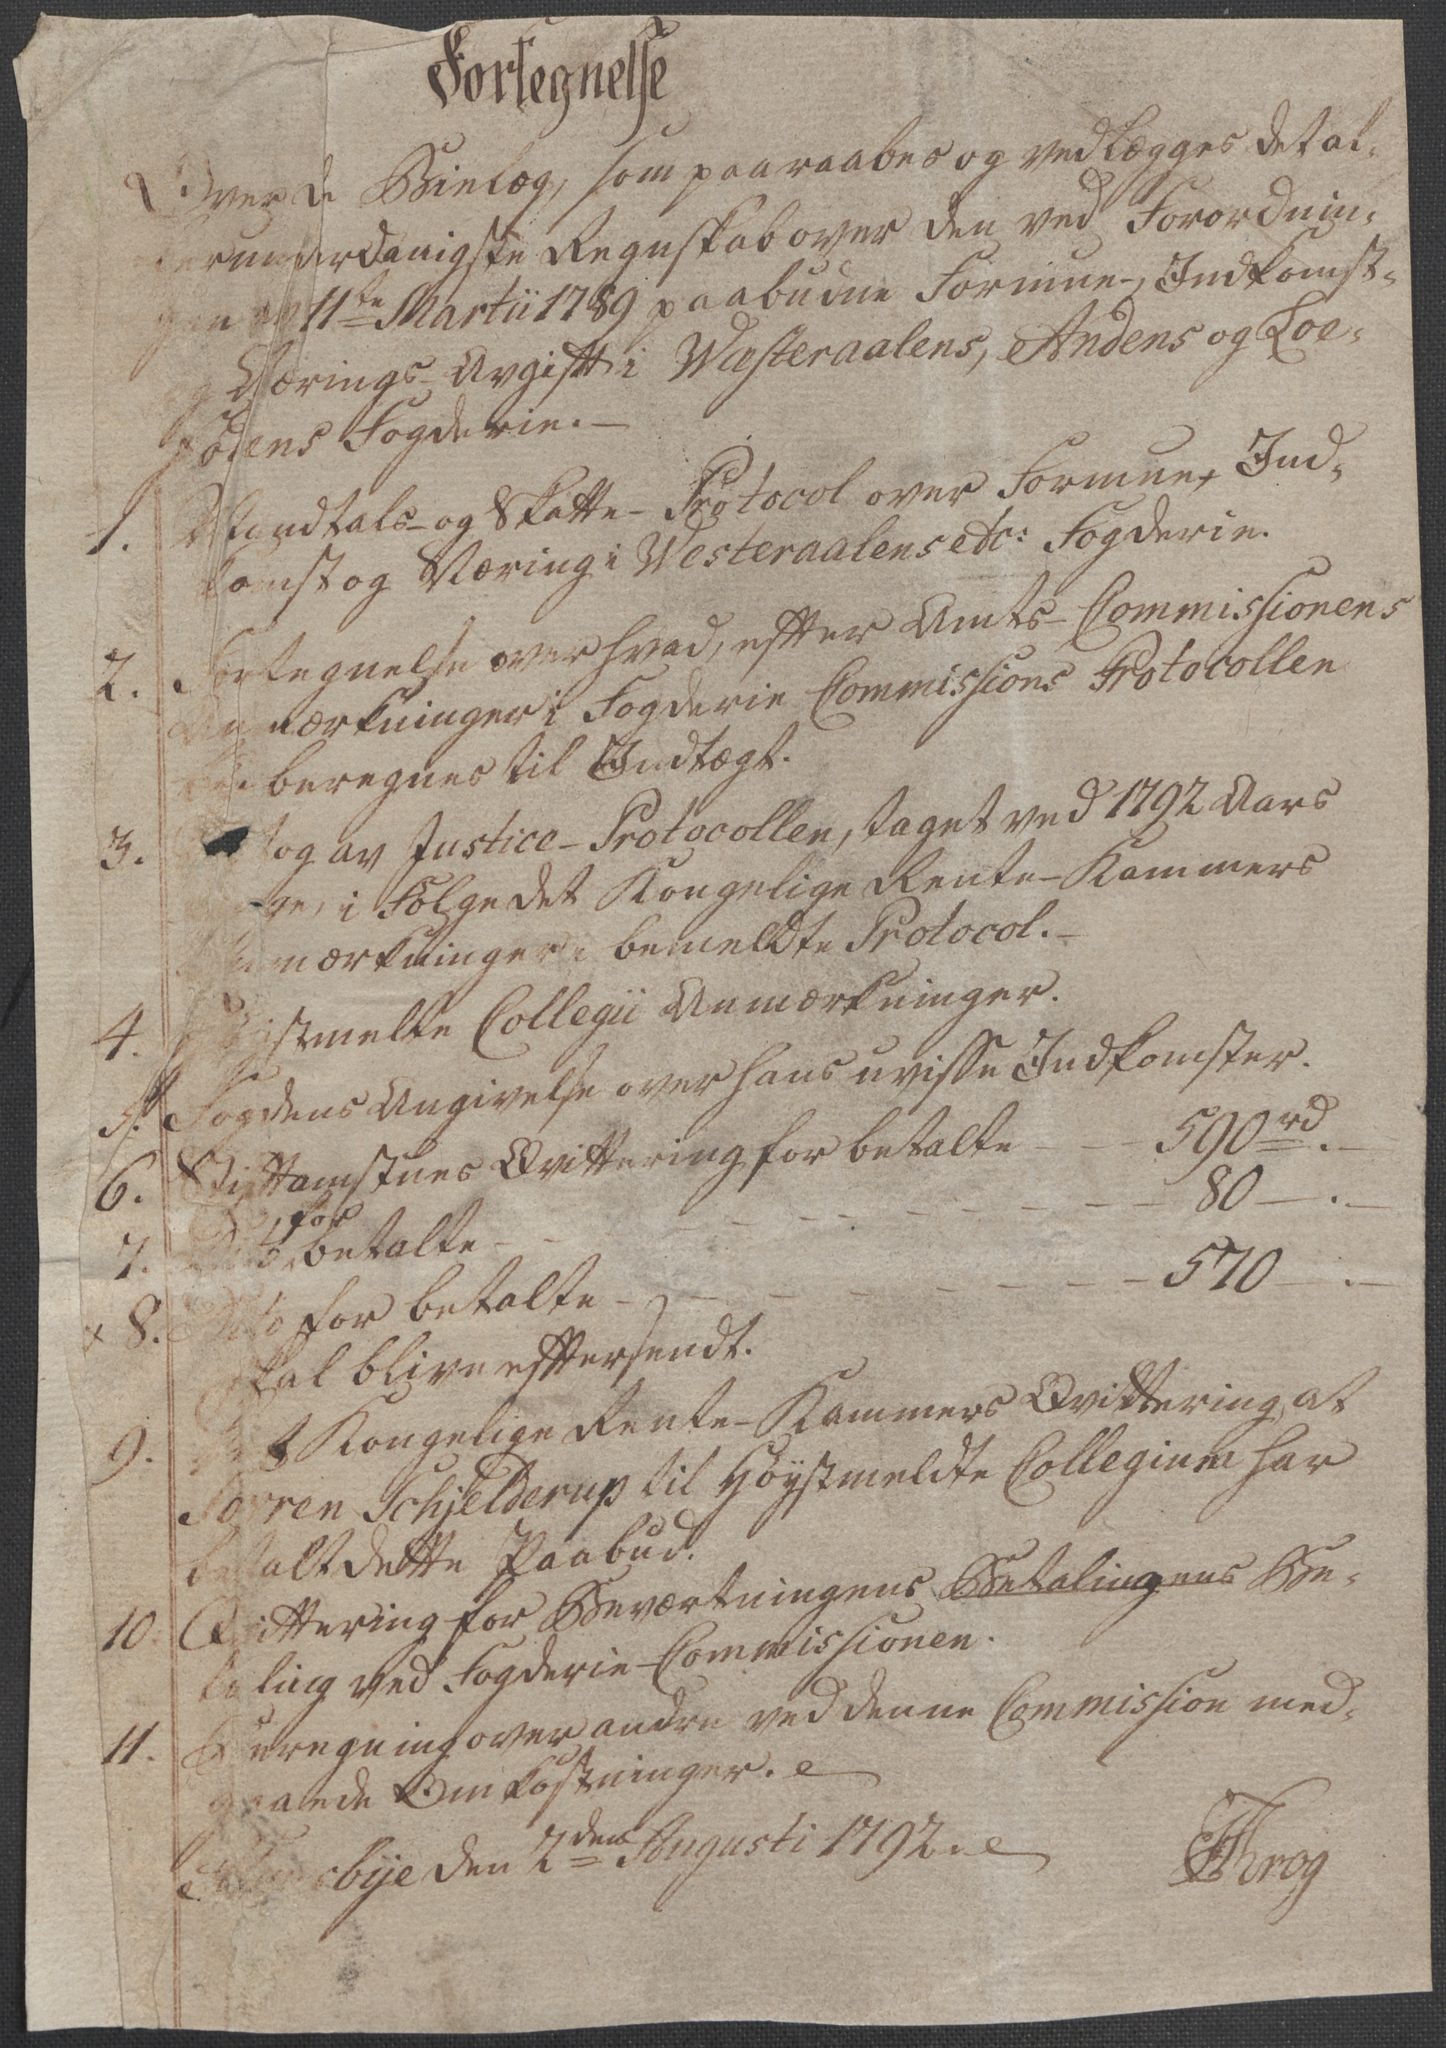 Fortegnelse
Over de Bielæg, som paaraabes og vedlægges det al-
lerunderdanigste Regnskab over den ved Forordnin-
gen av 11te Martii 1789 paabudne Formue-, Indkomst-
og Nærings-Avgift i Wæsteraalens, Andens og Loe-
fodens Fogderie.
1. Mandtals- og Skatte-Protocol over Formue, Ind-
komst og Næring i Westeraalens etc: Fogderie.
2. Fortegnelse over hvad, effter Amts-Commissionens
Anmærkninger i Fogderie Commissions Protocollen
beregnes til Indtægt.
3. Udtog av Justice-Protocollen, taget ved 1792 Aars
i Følge det Kongelige Rente-Kammers
Anmærkninger i bemeldte Protocol.
4. Høystmelte Collegii Anmærkninger.
5. Fogdens Angivelse over hans uvisse Indkomster.
6. Stiftamstues Qvittering for betalte - - 590 rd. -
7. Dito, for betalte - - - - - - - - 80 - . -
x 8. Dito for betalte - - - - - - - - 570 - . -
skal blive efftersendt.
9. Det Kongelige Rente-Kammers Qvittering, at
Sørren Schjelderup til Høystmeldte Collegium har
betalt dette Paabud.
10. Qvittering for Beværtningens Betalingens Be-
taling ved Fogderie-Commissionen.
11. Beregning over andre ved denne Commission med-
gaaede Omkostninger.
den 2den Augusti 1792.
Throg